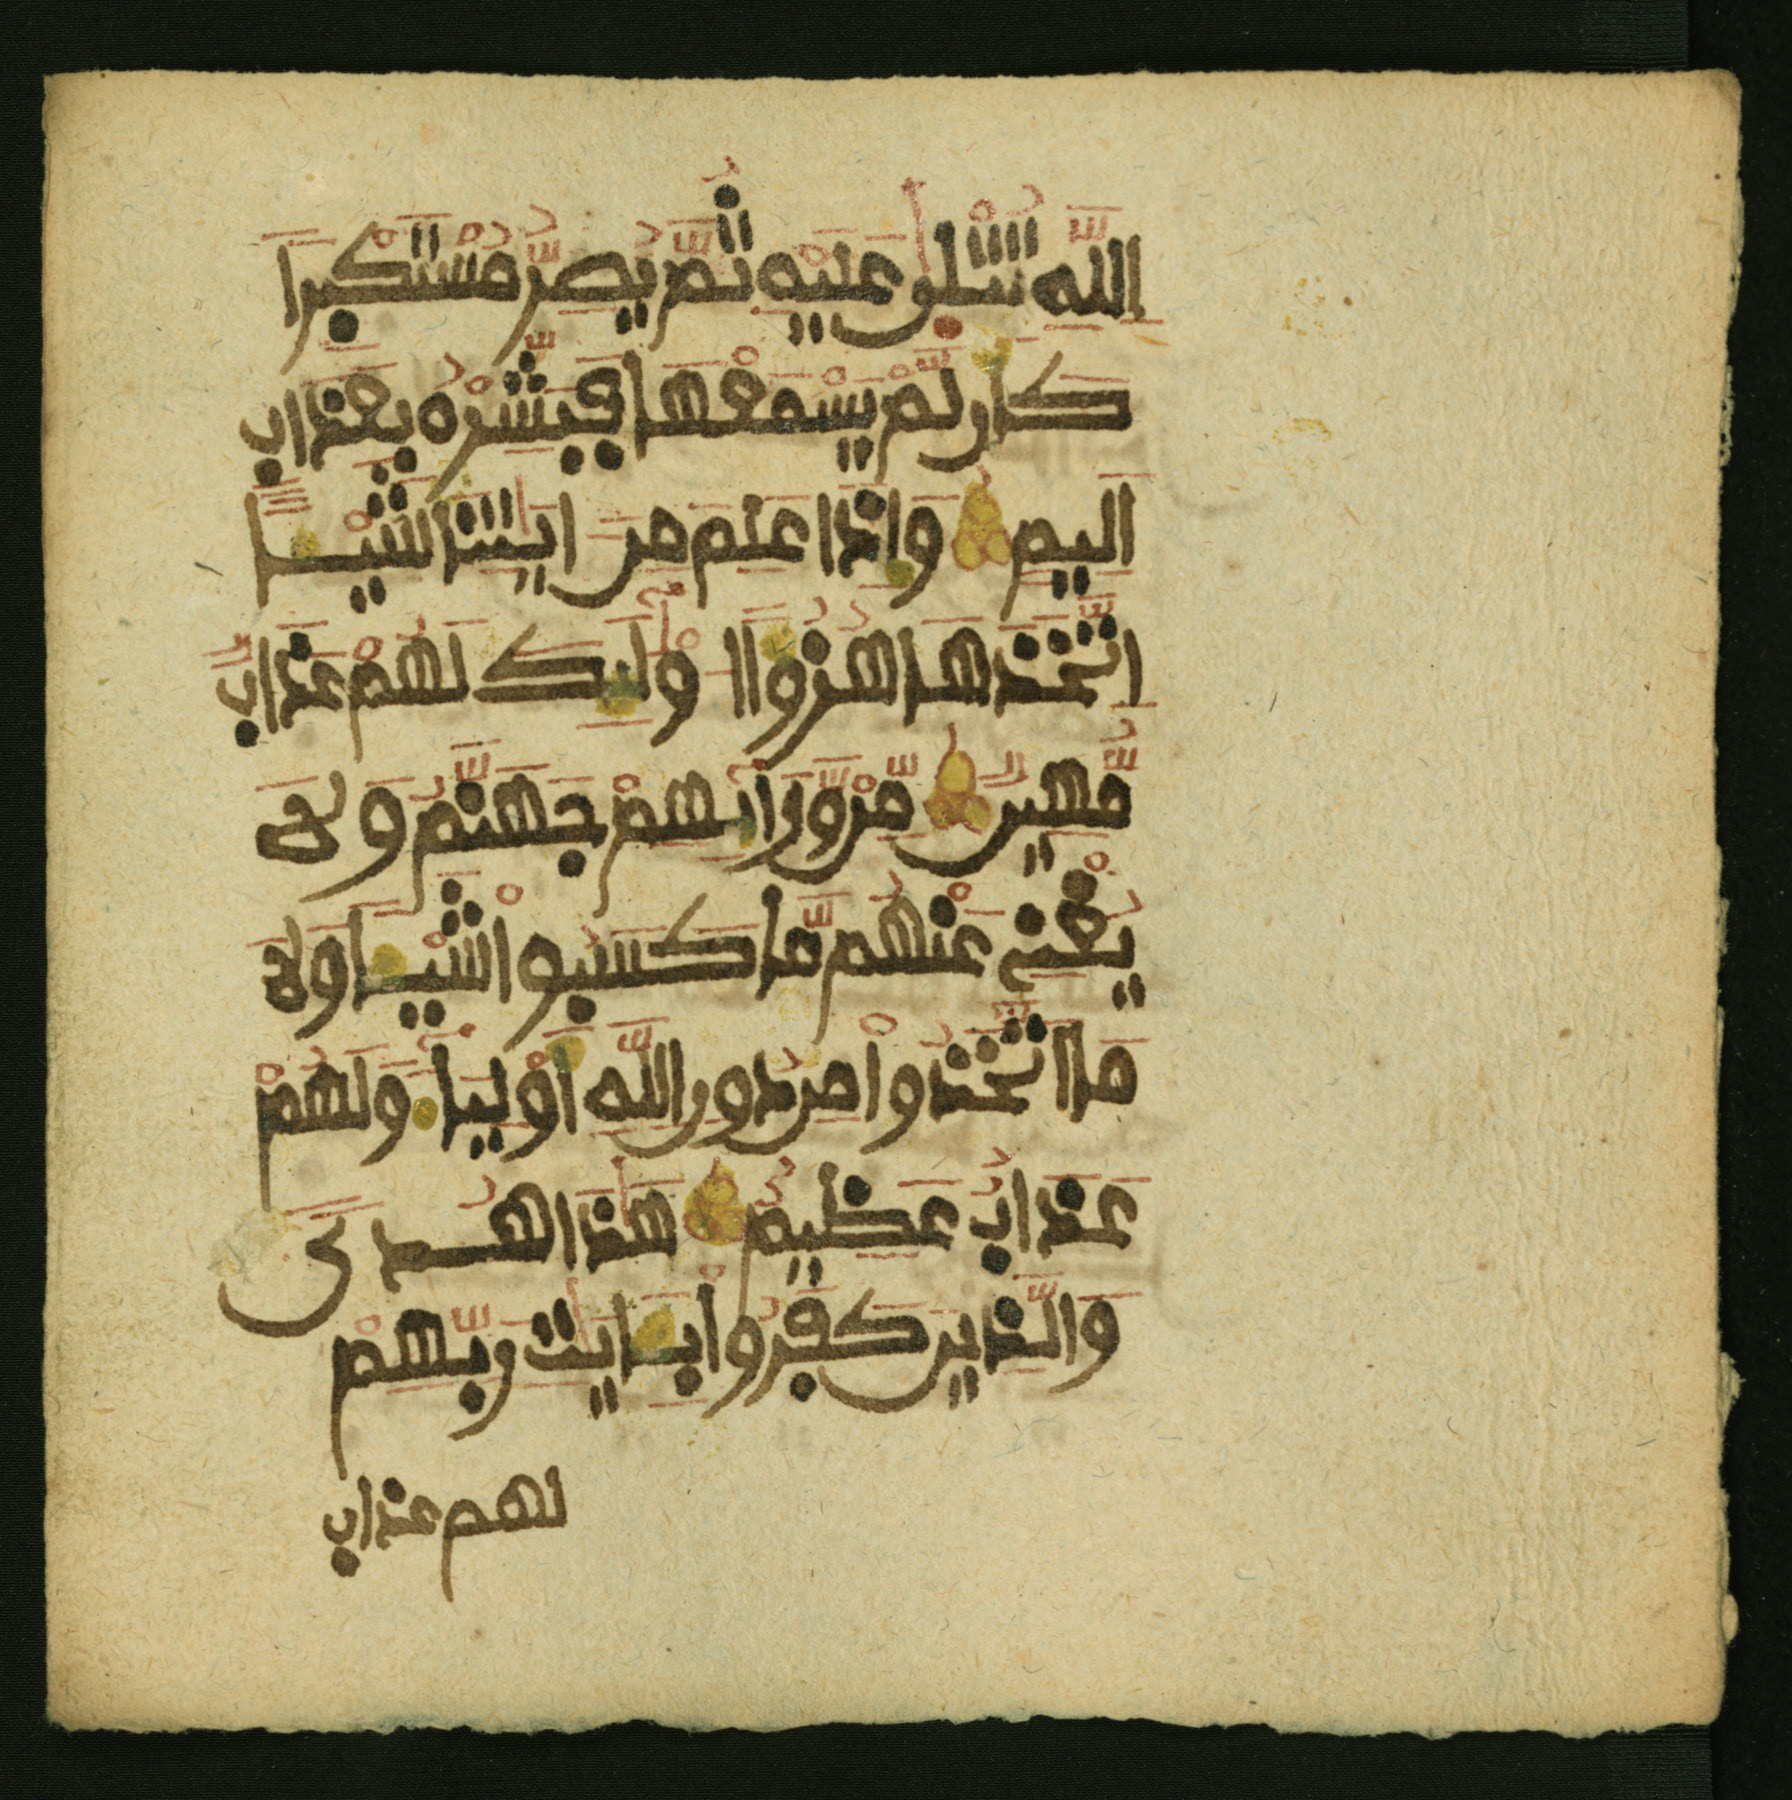 اللَّهِ تُتْلَىٰ عَلَيْهِ ثُمَّ يُصِرُّ مُسْتَكْبِرًا
كَأَن لَّمْ يَسْمَعْهَا فَبَشِّرْهُ بِعَذَابٍ
اَلِيمٍ وَإِذَا عَلِمَ مِنَ ايَٰتِنَا شَيْـًٔا
اتَّخَذَهَا هُزُؤًا ا۟وْلَٰٓئِكَ لَهُمْ عَذَابٌ
مُّهِينٌ مِّنْ وَّرَآئِهِمْ جَهَنَّمُ وَلَا
يُغْنِے عَنْهُم مَّا كَسَبُوا۟ شَيْـًٔا وَلَا
مَا اتَّخَذُوا۟ مِن دُونِ اللَّهِ أَوْلِيَآءَ وَلَهُمْ
عَذَابٌ عَظِيمٌ هَٰذَا هُدًى
وَالَّذِينَ كَفَرُوا۟ بِـَٔايَٰتِ رَبِّهِمْ
لهم عذاب